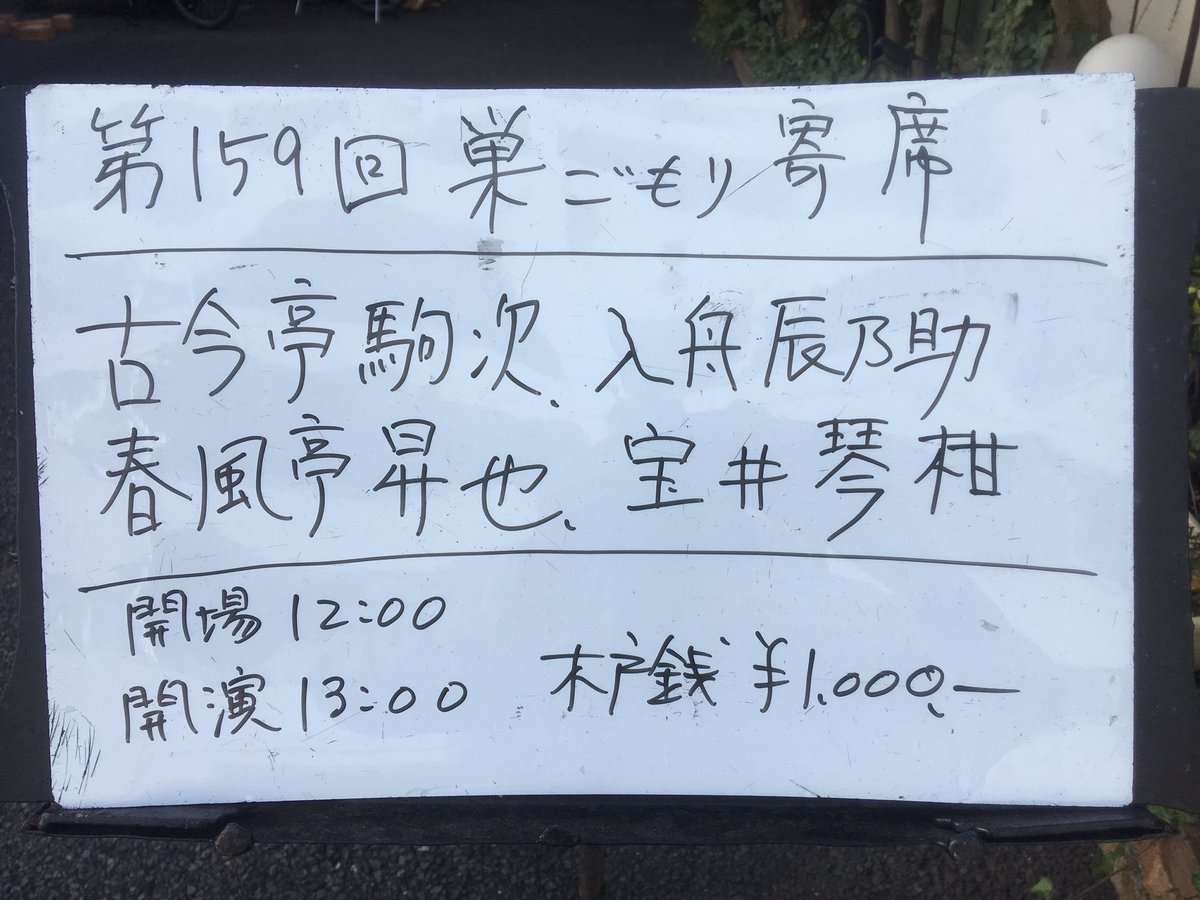 第159回 巣ごもり寄席
古今亭駒次、入舟辰乃助
春風亭昇也、宝井琴柑
開場 12:00
開演 13:00
木戸銭 ¥1,000.—